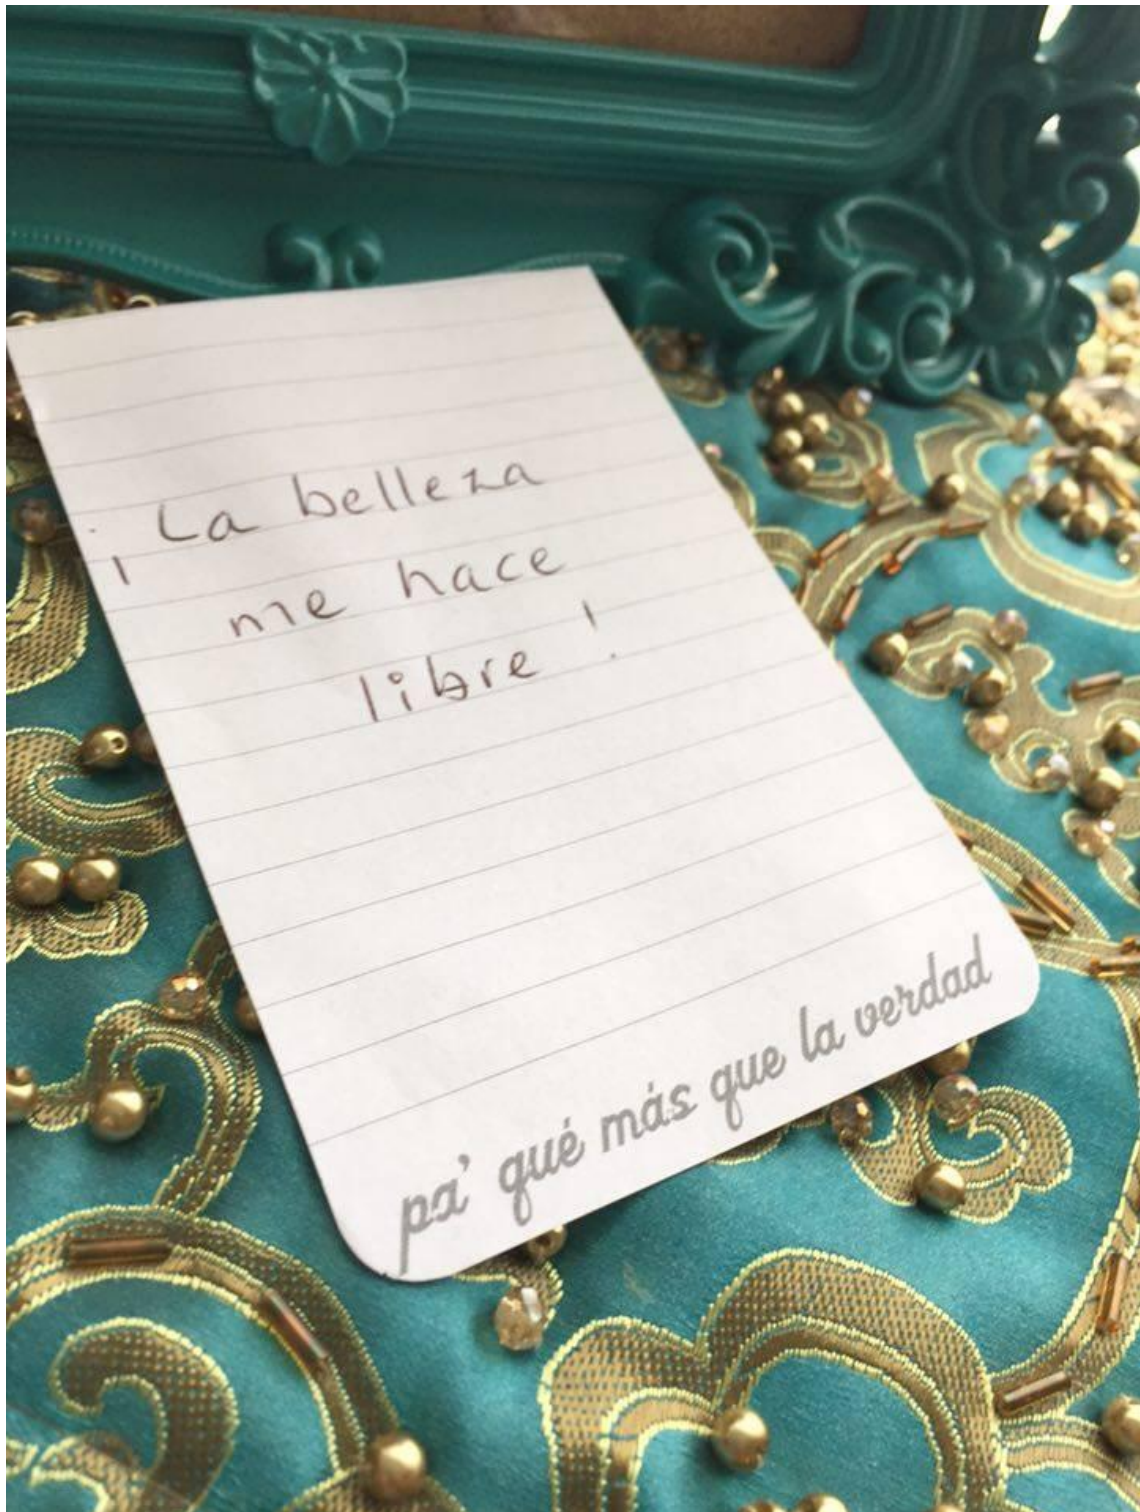 ¡La belleza
me hace
libre!
pa' qué más que la verdad